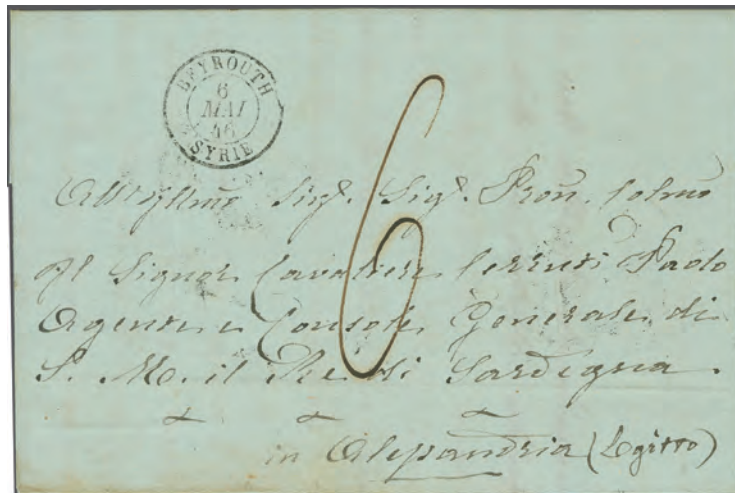 BEYROUTH
6
MAI
46
SYRIE
6
All'Illmo Sigr. Sigr. Pron. Colmo
Il Signor Cavaliere Cerruti Paolo
Agente e Console Generale di
S. M. il Re di Sardegna
in Alessandria (Egitto)